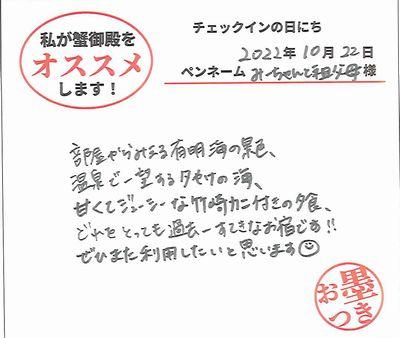 私が蟹御殿を
オススメ
します！
チェックインの日にち
2022年10月22日
ペンネーム みーちゃんと祖父母様
部屋からみえる有明海の景色、
温泉で一望する夕やけの海、
甘くてジューシーな竹崎カニ付きの夕食、
どれをとっても過去一すてきなお宿です!!
ぜひまた利用したいと思います☺
お墨
つき